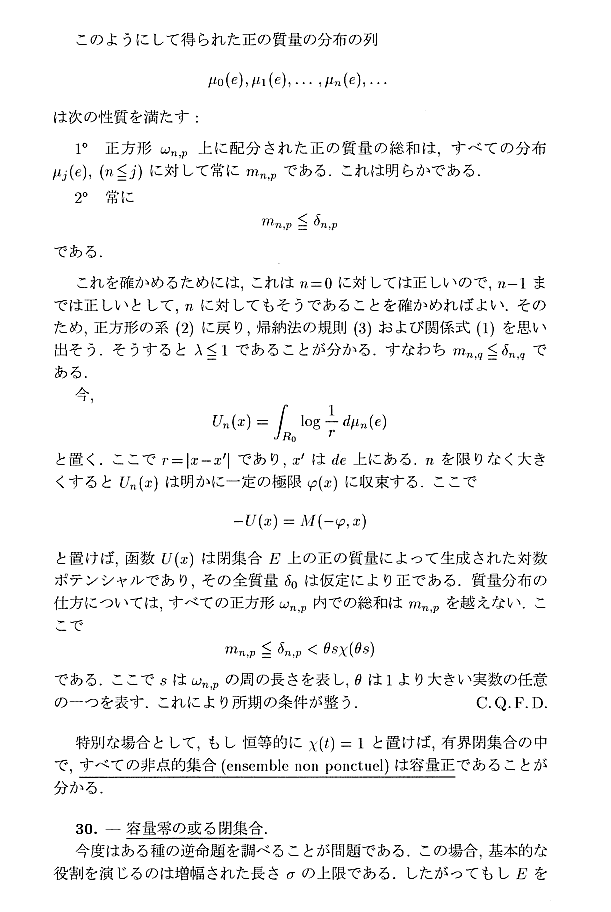 このようにして得られた正の質量の分布の列
μ₀(e), μ₁(e), ..., μₙ(e), ...
は次の性質を満たす :
1° 正方形 ω_{n,p} 上に配分された正の質量の総和は, すべての分布
μ_j(e), (n≦j) に対して常に m_{n,p} である. これは明らかである.
2° 常に
m_{n,p} ≦ δ_{n,p}
である.
これを確かめるためには, これは n=0 に対しては正しいので, n−1 ま
では正しいとして, n に対してもそうであることを確かめればよい. その
ため, 正方形の系 (2) に戻り, 帰納法の規則 (3) および関係式 (1) を思い
出そう. そうすると λ≦1 であることが分かる. すなわち m_{n,q}≦δ_{n,q} で
ある.
今,
Uₙ(x) = ∫_{R₀} log 1/r dμₙ(e)
と置く. ここで r=|x−x′| であり, x′ は de 上にある. n を限りなく大き
くすると Uₙ(x) は明かに一定の極限 φ(x) に収束する. ここで
−U(x) = M(−φ, x)
と置けば, 函数 U(x) は閉集合 E 上の正の質量によって生成された対数
ポテンシャルであり, その全質量 δ₀ は仮定により正である. 質量分布の
仕方については, すべての正方形 ω_{n,p} 内での総和は m_{n,p} を越えない. こ
こで
m_{n,p} ≦ δ_{n,p} < θsχ(θs)
である. ここで s は ω_{n,p} の周の長さを表し, θ は 1 より大きい実数の任意
の一つを表す. これにより所期の条件が整う. C. Q. F. D.
特別な場合として, もし 恒等的に χ(t) = 1 と置けば, 有界閉集合の中
で, すべての非点的集合 (ensemble non ponctuel) は容量正であることが
分かる.
30. — 容量零の或る閉集合.
今度はある種の逆命題を調べることが問題である. この場合, 基本的な
役割を演じるのは増幅された長さ σ の上限である. したがってもし E を